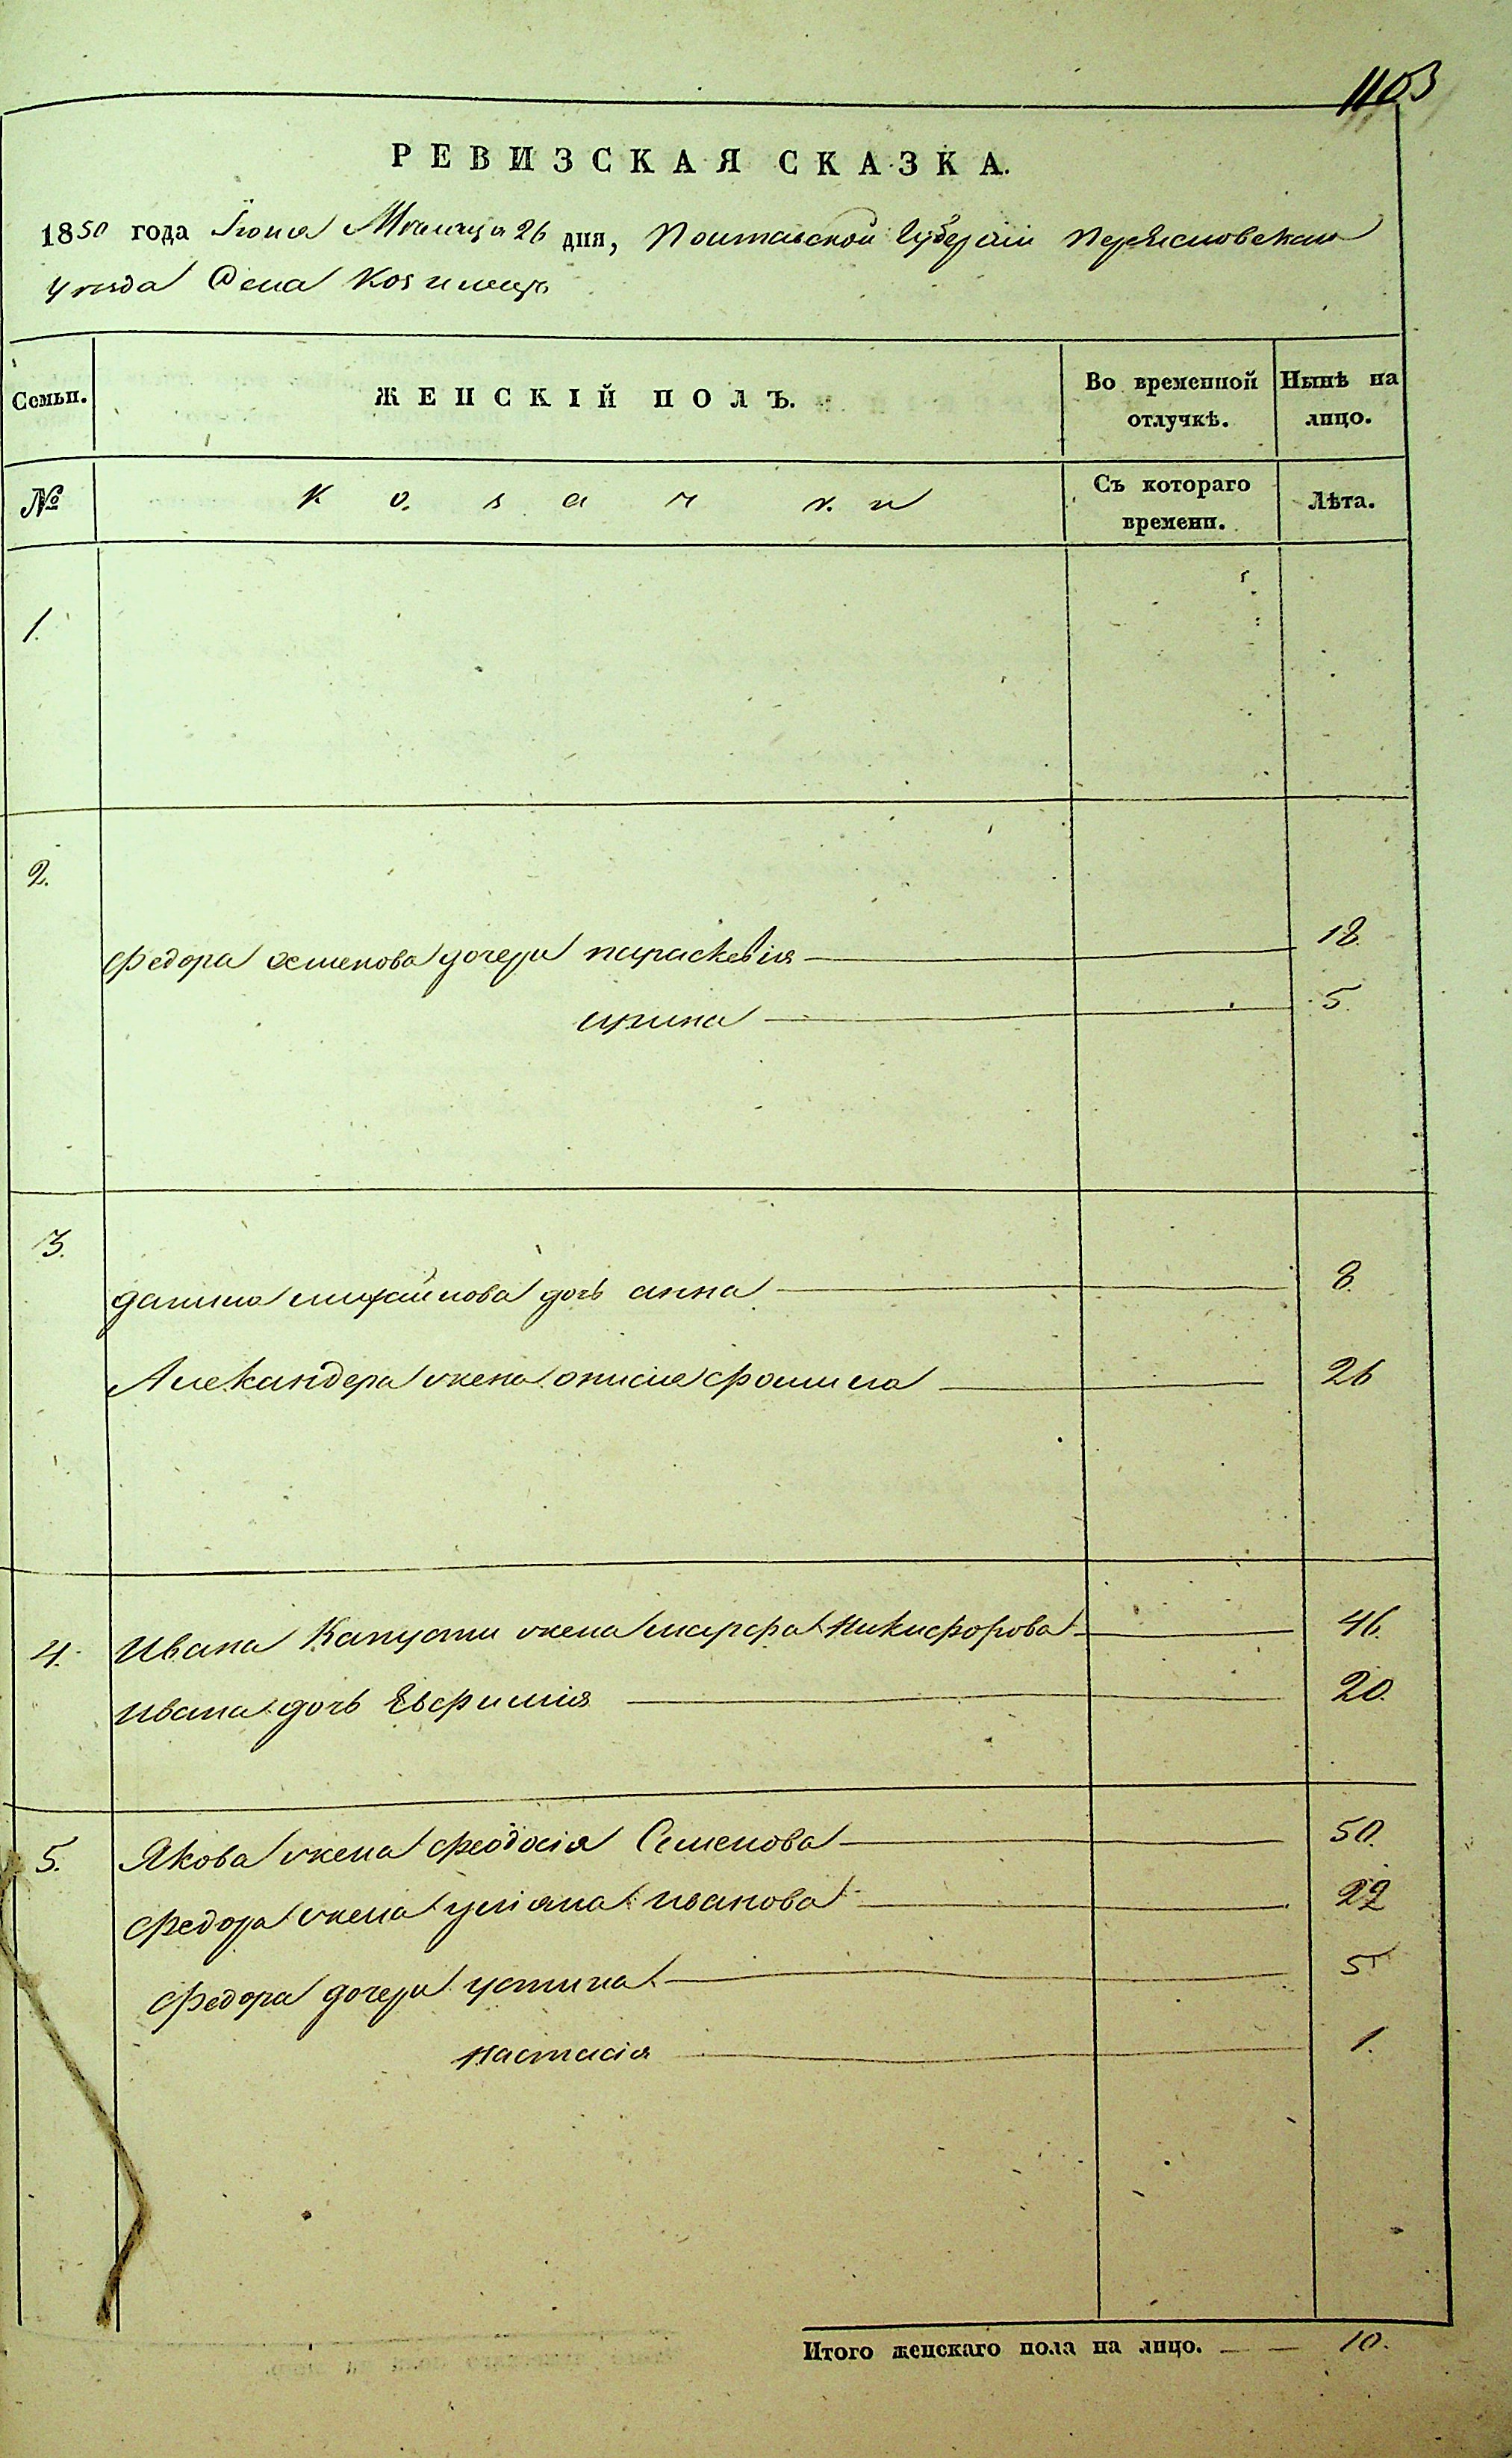 1103
РЕВИЗСКАЯ СКАЗКА.
1850 года Іюня Месяца 26 дня, Полтавской Губерніи Переясловскаго
уезда Села Козинецъ
Семьи.
ЖЕНСКІЙ ПОЛЪ.
Во временной отлучкѣ.
Нынѣ на лицо.
№
Козачки
Съ котораго времени.
Лѣта.
1.
2.
Федора дочери параскевія 18.
ирина 5.
3.
данила михайлова дочь анна 8.
Александера жена фомина 26
4. Ивана Капусти жена марфа Никифорова 46.
Ивана дочь Евфимія 20.
5. Якова жена феодосія Семенова 50.
Федора жена уліяна Иванова 22
Федора дочери устина 5
настасія 1.
Итого женскаго пола на лицо. 10.